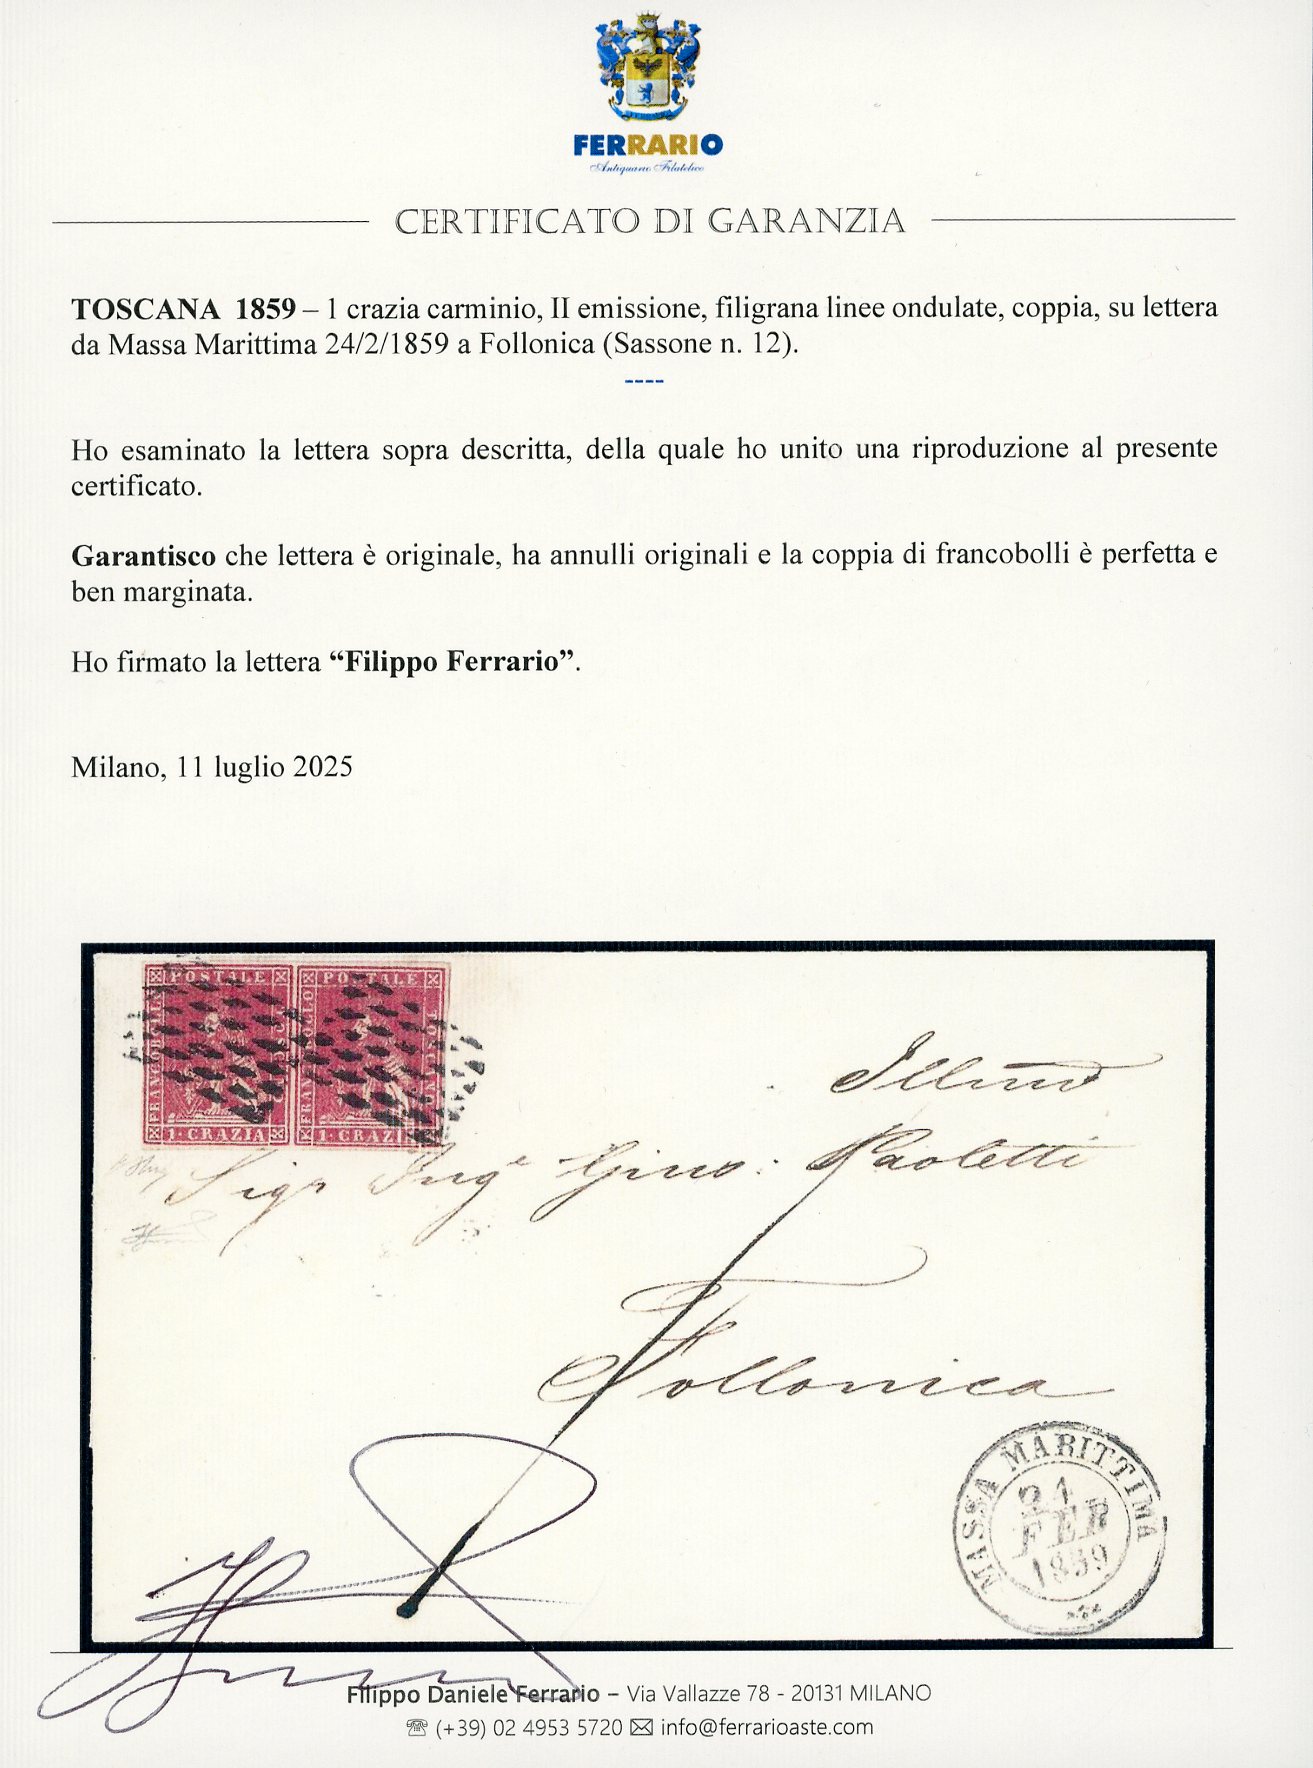 FERRARIO
Antiquario Filatelico
CERTIFICATO DI GARANZIA
TOSCANA 1859 – 1 crazia carminio, II emissione, filigrana linee ondulate, coppia, su lettera
da Massa Marittima 24/2/1859 a Follonica (Sassone n. 12).
----
Ho esaminato la lettera sopra descritta, della quale ho unito una riproduzione al presente
certificato.
Garantisco che lettera è originale, ha annulli originali e la coppia di francobolli è perfetta e
ben marginata.
Ho firmato la lettera “Filippo Ferrario”.
Milano, 11 luglio 2025
POSTALE POSTALE
FRANCOBOLLO
TOSCANO
1·CRAZIA 1·CRAZI
Sigr Inge Gino Paoletti
Follonica
MASSA MARITTIMA
FEB
1859
Filippo Daniele Ferrario – Via Vallazze 78 - 20131 MILANO
☏ (+39) 02 4953 5720 ✉ info@ferrarioaste.com